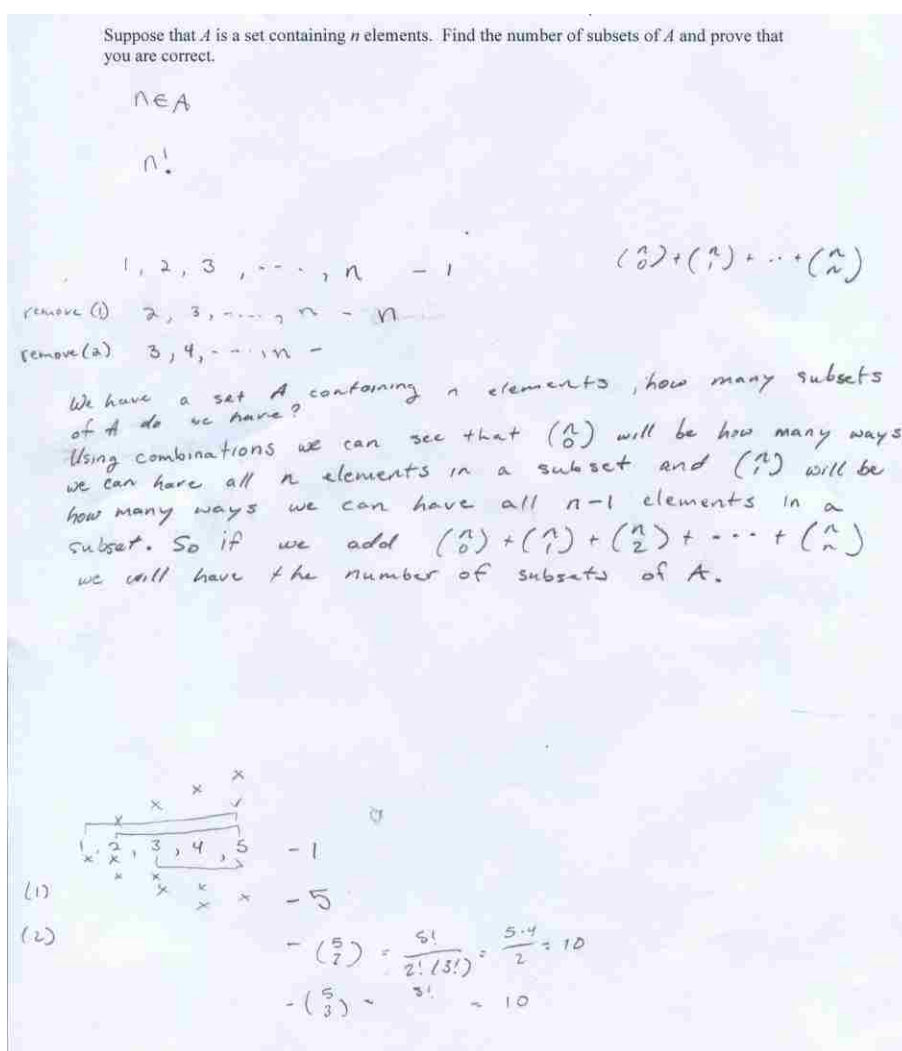 Suppose that A is a set containing n elements. Find the number of subsets of A and prove that
you are correct.
n∈A
n!
1, 2, 3, ..., n - 1
(n 0) + (n 1) + ... + (n n)
remove (1) 2, 3, ..., n - n
remove (2) 3, 4, ..., n -
We have a set A containing n elements, how many subsets
of A do we have?
Using combinations we can see that (n 0) will be how many ways
we can have all n elements in a subset and (n 1) will be
how many ways we can have all n-1 elements in a
subset. So if we add (n 0) + (n 1) + (n 2) + ... + (n n)
we will have the number of subsets of A.
1, 2, 3, 4, 5 - 1
(1) - 5
(2) - (5 2) = 5! / 2!(3!) = 5·4 / 2 = 10
- (5 3) - 3! = 10